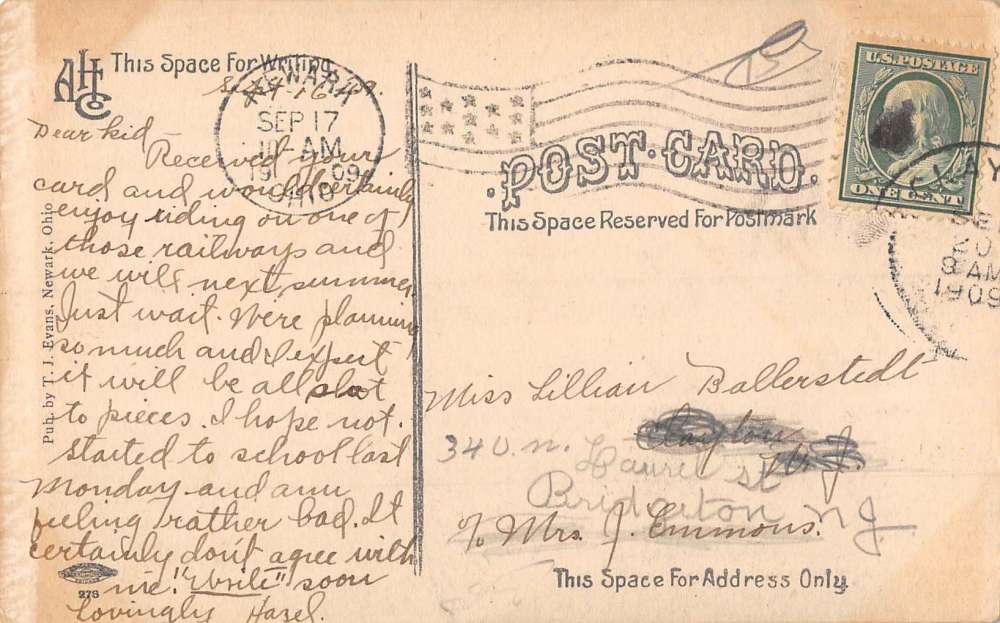 AHCo
This Space For Writing
9-16
NEWARK
SEP 17
10 AM
1909
OHIO
Dear Kid -
Received your
card and would certainly
enjoy riding on one of
those railways and
we will next summer
Just wait. We're planning
so much and I expect
it will be all shot
to pieces. I hope not.
Started to school last
Monday and am
feeling rather bad. It
certainly don't agree with
me! "Write" soon
Lovingly Hazel.
Pub. by T. J. Evans, Newark, Ohio
276
POST CARD.
This Space Reserved For Postmark
U.S. POSTAGE
ONE CENT
20
8 AM
1909
Miss Lillian Ballerstedt
Clayton
N. J.
340 N. Laurel St
Bridgeton N J.
% Mrs. J. Emmons.
This Space For Address Only.